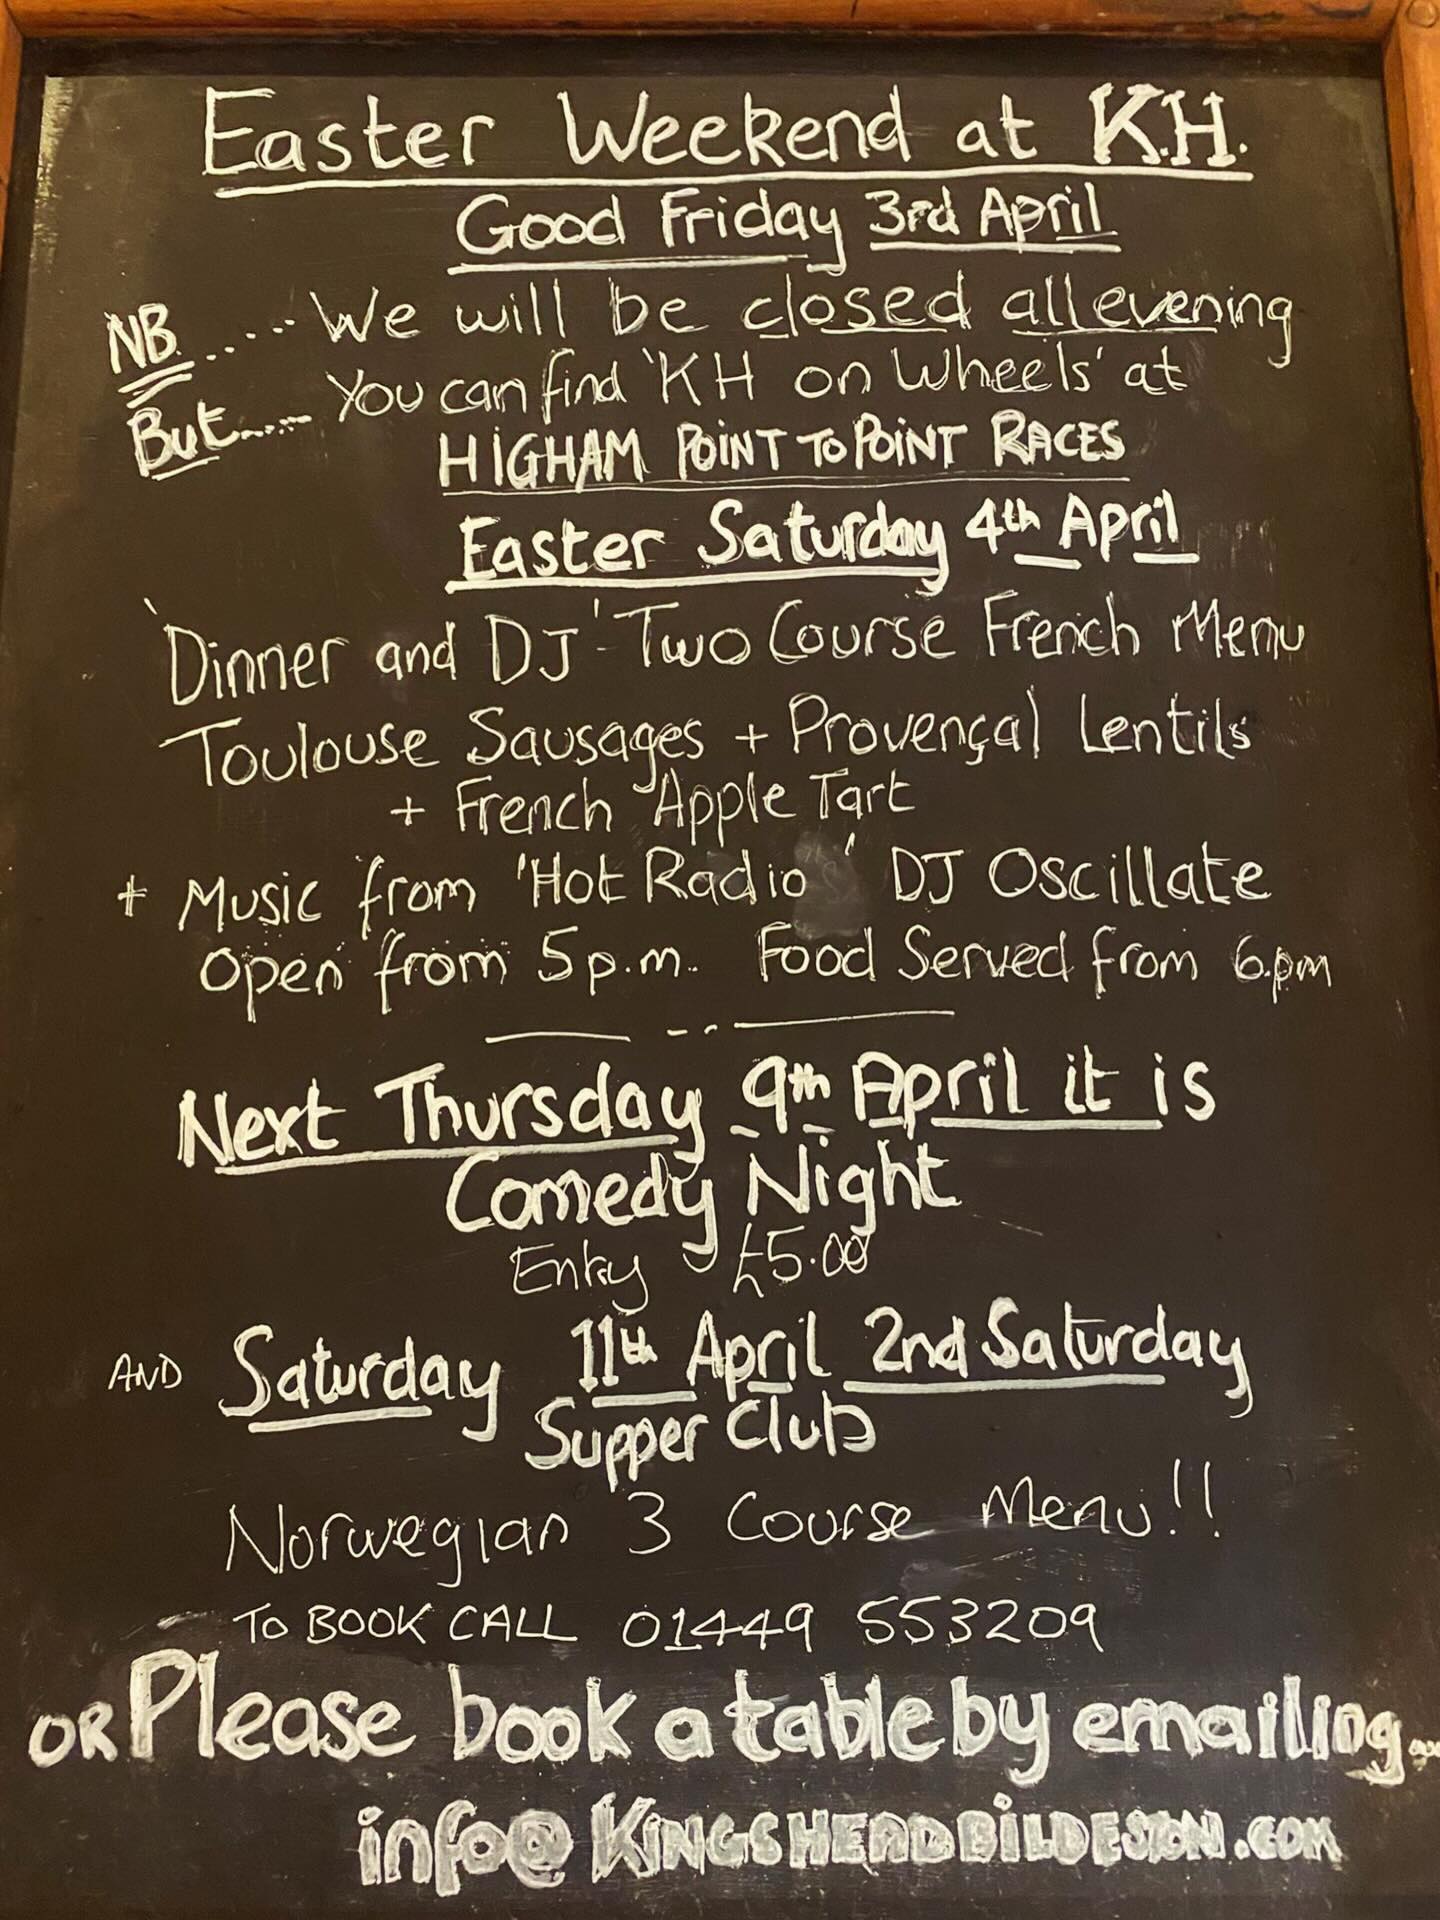 Easter Weekend at K.H.
Good Friday 3rd April
NB...... We will be closed all evening
But..... You can find 'KH on Wheels' at
HIGHAM POINT TO POINT RACES
Easter Saturday 4th April
'Dinner and DJ' - Two Course French Menu
Toulouse Sausages + Provençal Lentils
+ French Apple Tart
+ Music from 'Hot Radio' DJ Oscillate
Open from 5p.m. Food Served from 6.pm
Next Thursday 9th April it is
Comedy Night
Entry £5.00
AND Saturday 11th April 2nd Saturday
Supper Club
Norwegian 3 Course Menu!!
TO BOOK CALL 01449 553209
OR Please book a table by emailing...
info@KINGSHEADBILDESTON.com